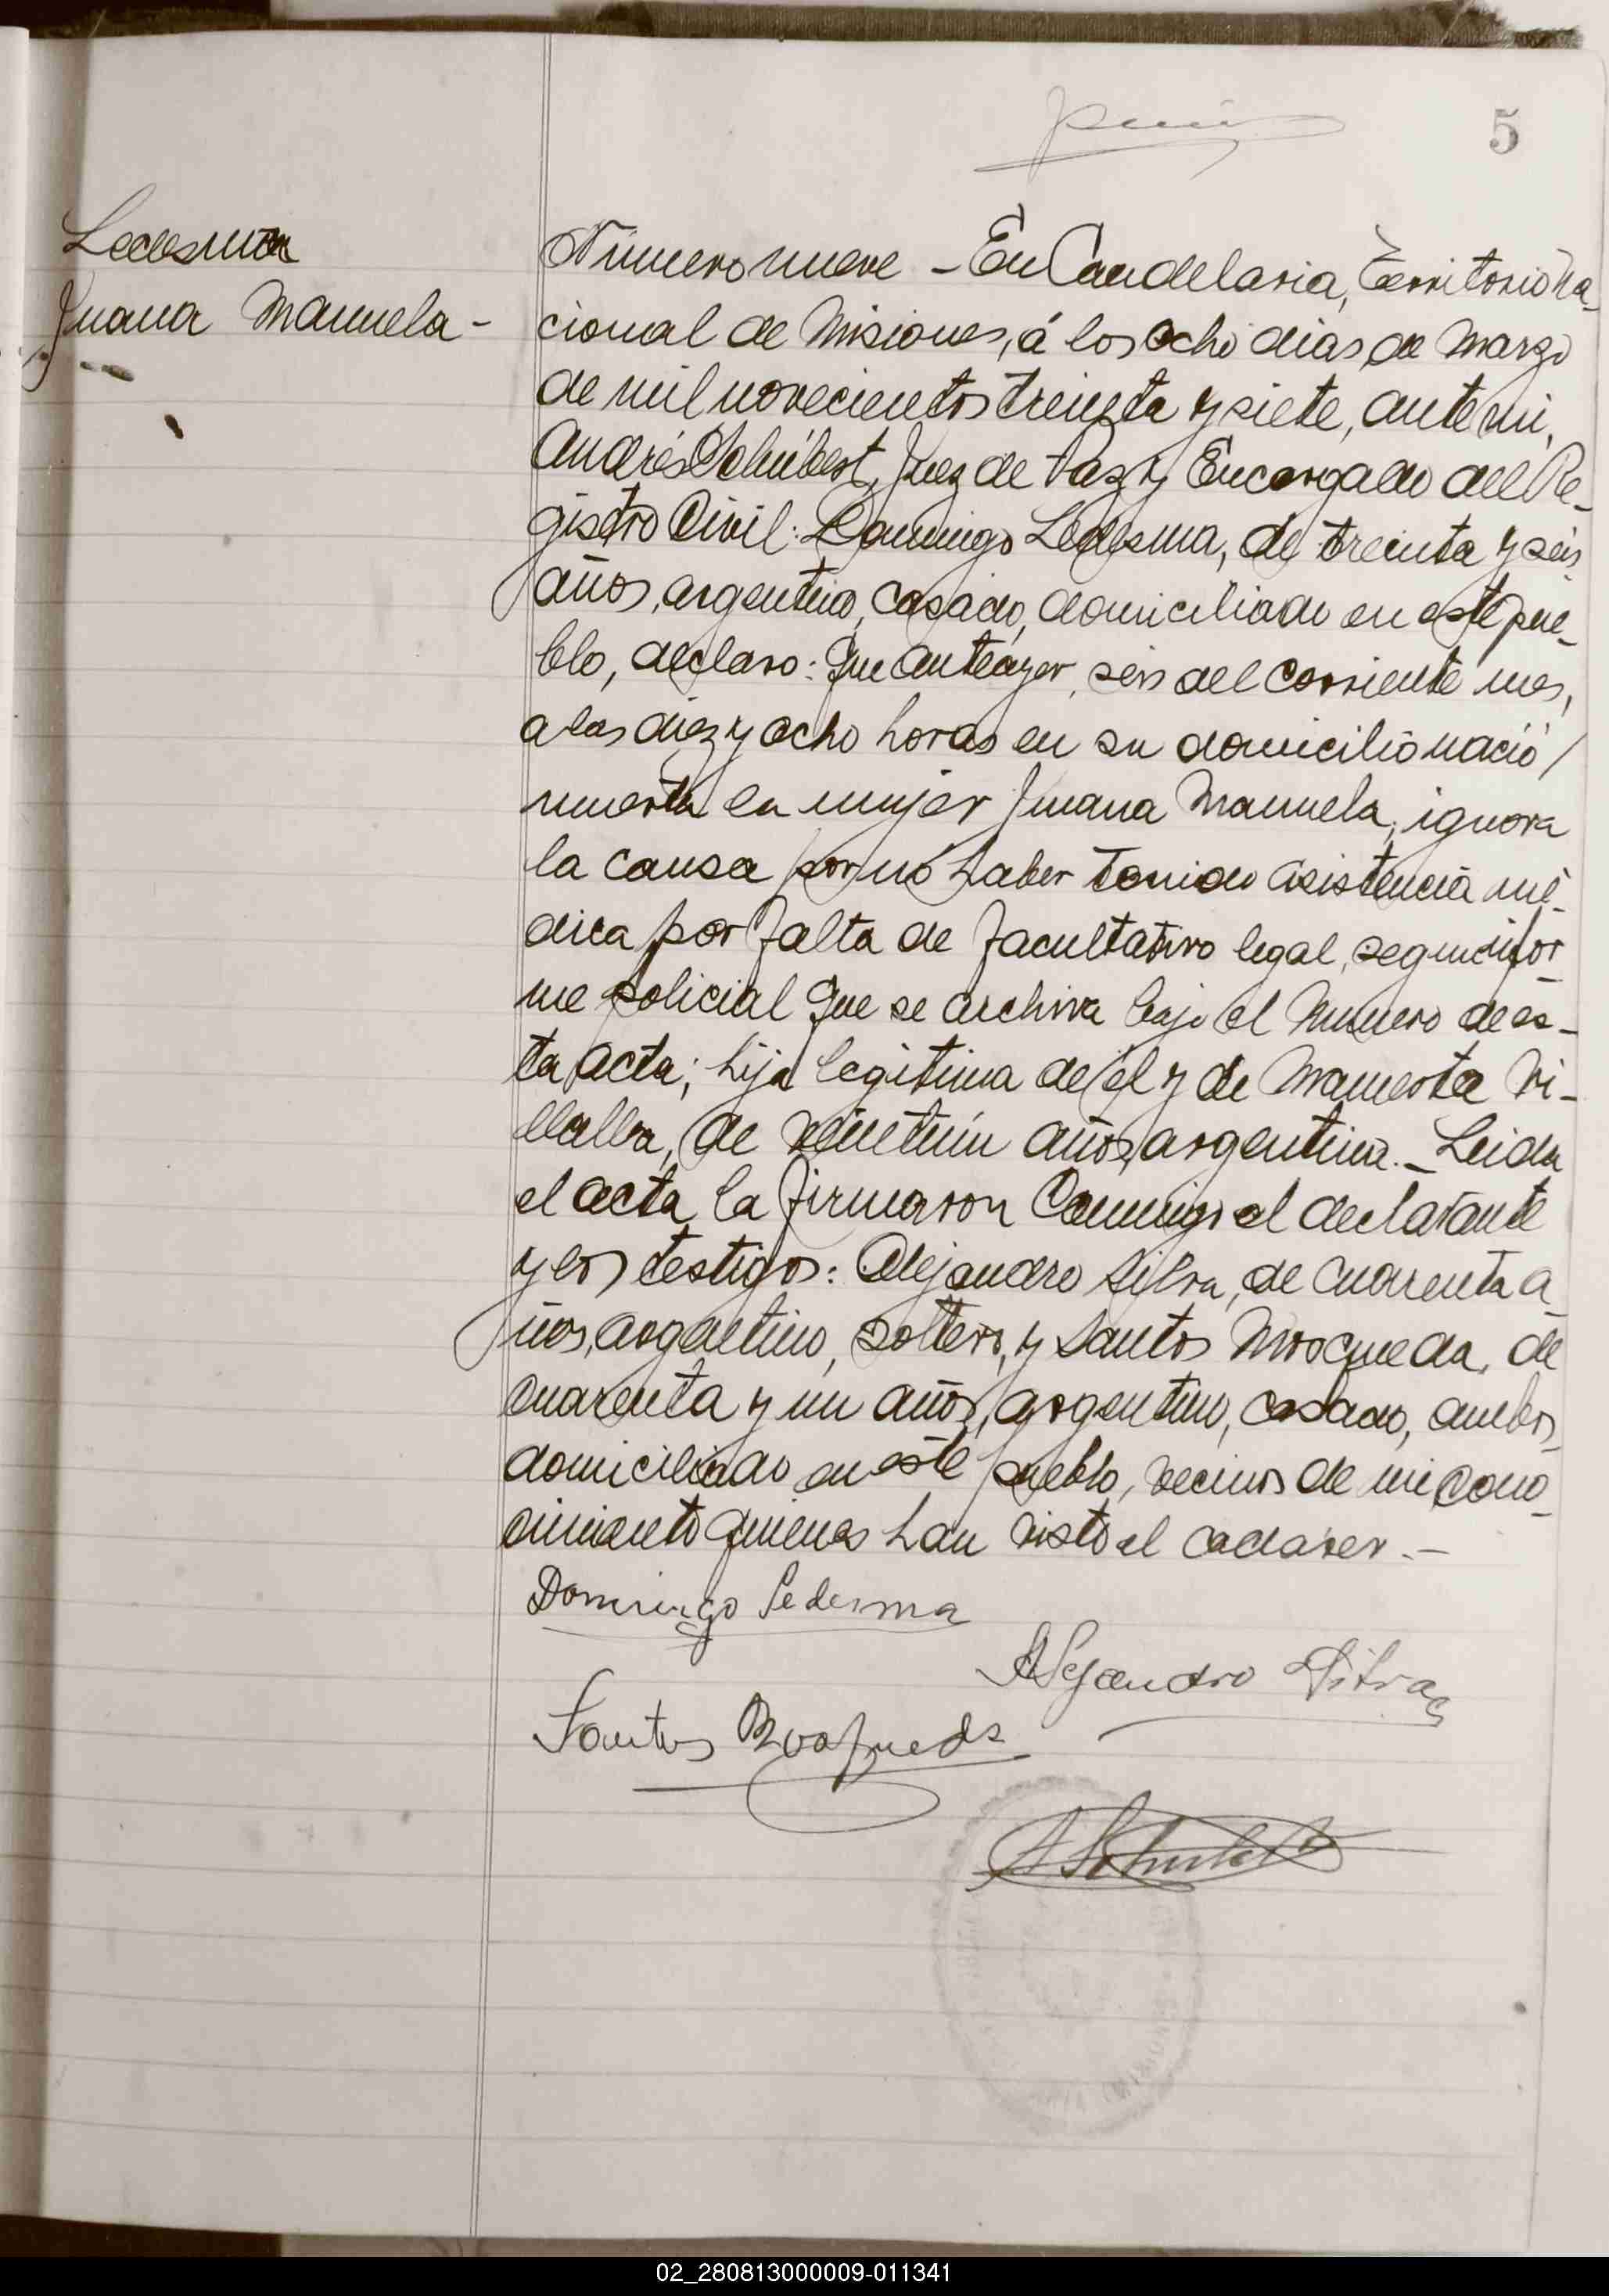 5
Ledesma
Juana Manuela-
Número nueve - En Candelaria, Territorio Na-
cional de Misiones, á los ocho dias de Marzo
de mil novecientos treinta y siete, ante mi,
Andrés Schúbert, Juez de Paz y Encargado del Re-
gistro Civil: Domingo Ledesma, de treinta y seis
años, argentino, casado, domiciliado en este pue-
blo, declaro: que anteayer, seis del corriente mes,
a las diez y ocho horas en su domicilio nació
muerta la mujer Juana Manuela, ignora
la causa por no haber tenido asistencia mé-
dica por falta de facultativo legal, segun infor-
me policial que se archiva bajo el número de és-
ta acta; hija legitima de él y de Mamerta Vi-
llalba, de veintiún años, argentina. - Leida
el acta la firmaron conmigo el declarante
y los testigos: Alejandro Silva, de cuarenta a-
ños, argentino, soltero, y Santos Mosqueda, de
cuarenta y un años, argentino, casado, ambos
domiciliado en este pueblo, vecinos de mi cono-
cimiento quienes han visto el cadáver. -
Domingo Ledesma
Alejandro Silva
Santos Mosqueda
A Schubert
02_280813000009-011341